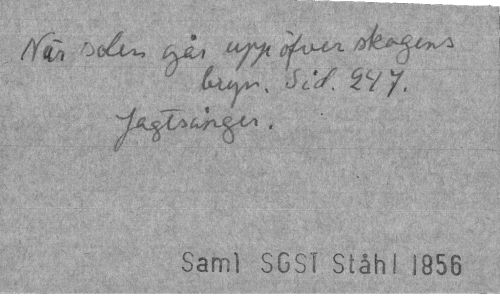 När solen går upp öfver skogens
bryn. Sid. 247.
Jagtsånger.
Saml SGST Ståhl 1856